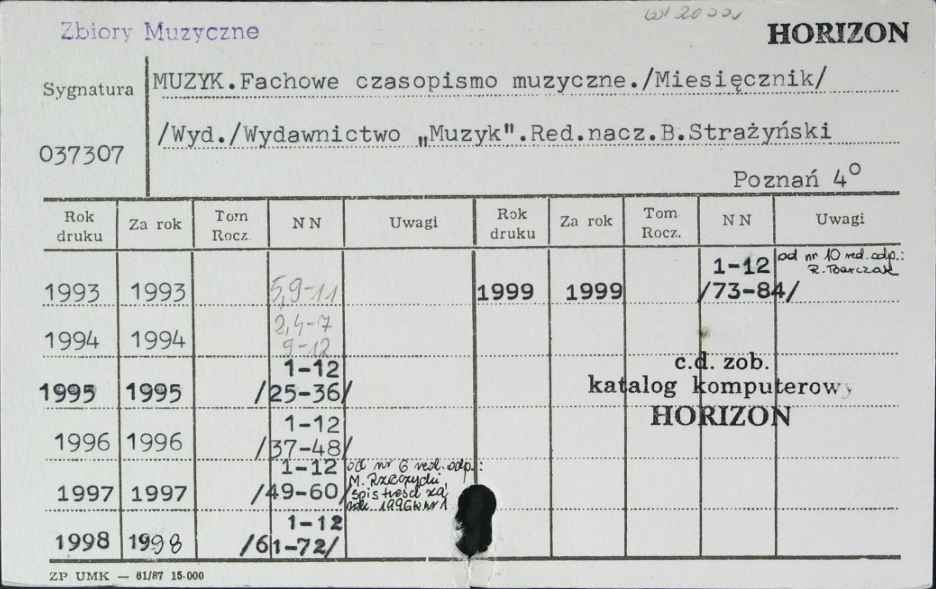 Zbiory Muzyczne
HORIZON
Sygnatura
037307
MUZYK.Fachowe czasopismo muzyczne./Miesięcznik/
/Wyd./Wydawnictwo „Muzyk".Red.nacz.B.Strażyński
Poznań 4°
Rok druku Za rok Tom Rocz. NN Uwagi Rok druku Za rok Tom Rocz. NN Uwagi
1993 1993 5,9-11
1994 1994 2,4-7
9-12
1995 1995 1-12
/25-36/
1996 1996 1-12
/37-48/
1997 1997 1-12
/49-60/
od nr 6 red. odp.:
M. Rzeczycki,
spis treści za
rok 1996 w nr 1
1998 1998 1-12
/61-72/
1999 1999 1-12
/73-84/
od nr 10 red. odp.:
R. Barczak
c.d. zob.
katalog komputerowy
HORIZON
ZP UMK — 61/87 15-000